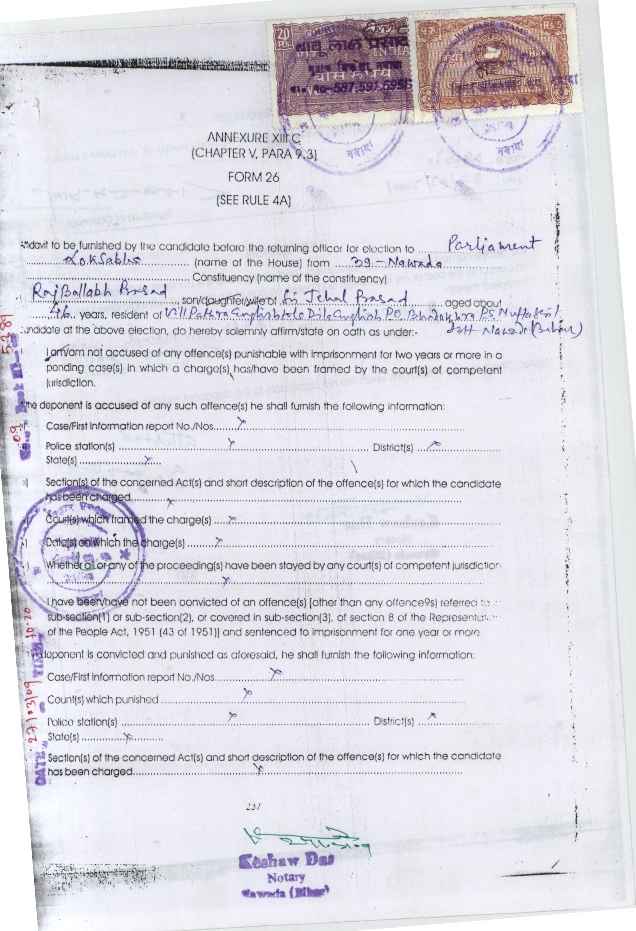 20
Rs.
बाबू लाल प्रसाद
ANNEXURE XIII C
(CHAPTER V, PARA 9.3)
FORM 26
(SEE RULE 4A)
Affidavit to be furnished by the candidate before the returning officer for election to ..... Parliament
..... Lok Sabha ..... (name of the House) from ..... 39 - Nawada
..... Constituency (name of the constituency)
Raj Ballabh Prasad, son/daughter/wife of Sri Jehal Prasad aged about
46 years, resident of Vill Pathra
candidate at the above election, do hereby solemnly affirm/state on oath as under:-
I am/am not accused of any offence(s) punishable with imprisonment for two years or more in a
pending case(s) in which a charge(s) has/have been framed by the court(s) of competent
jurisdiction.
the deponent is accused of any such offence(s) he shall furnish the following information:
Case/First Information report No./Nos..... x
Police station(s) ..... x ..... District(s) ..... x
State(s) ..... x .....
Section(s) of the concerned Act(s) and short description of the offence(s) for which the candidate
has been charged ..... x .....
Court(s) which framed the charge(s) ..... x .....
Date(s) on which the charge(s) ..... x .....
Whether all or any of the proceeding(s) have been stayed by any court(s) of competent jurisdiction
..... x .....
I have been/have not been convicted of an offence(s) [other than any offence9s) referred to
sub-section(1) or sub-section(2), or covered in sub-section(3), of section 8 of the Representation
of the People Act, 1951 (43 of 1951)] and sentenced to imprisonment for one year or more.
deponent is convicted and punished as aforesaid, he shall furnish the following information:
Case/First Information report No./Nos..... x
Count(s) which punished ..... x
Police station(s) ..... x ..... District(s) ..... x
State(s) ..... x .....
Section(s) of the concerned Act(s) and short description of the offence(s) for which the candidate
has been charged ..... x .....
237
Keshaw Das
Notary
Nawada (Bihar)
DATE 27/03/09 TIME